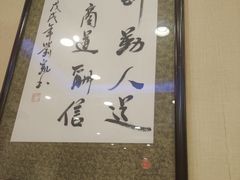 勤人道
商道酬信
戊戌年劉